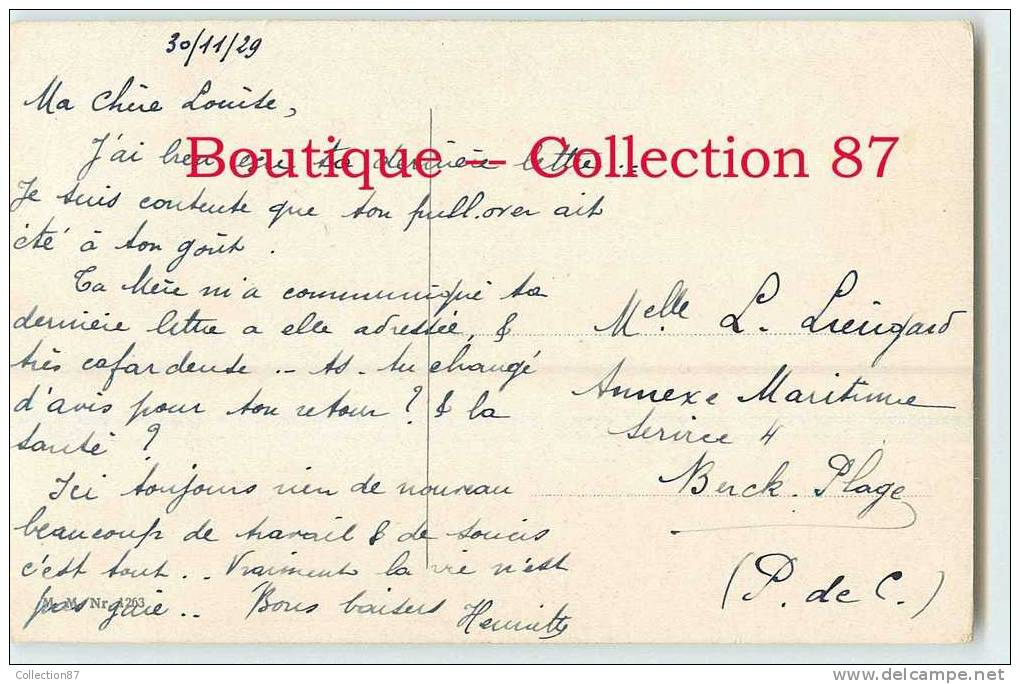 30/11/29
Ma Chère Louise,
J'ai bien reçu ta dernière lettre ..
Boutique -- Collection 87
Je suis contente que ton pull.over ait
été à ton goût.
Ta Mère m'a communiqué ta
dernière lettre a elle adressée, &
très cafardeuse .. As-tu changé
d'avis pour ton retour ? & la
santé ?
Ici toujours rien de nouveau
beaucoup de travail & de soucis
c'est tout .. Vraiment la vie n'est
pas gaie .. Bons baisers Henriette
M. M. Nr. 1263
Melle L. Liengard
Annexe Maritime
Service 4
Berck. Plage
(P. de C.)
Collection87
delcampe.net